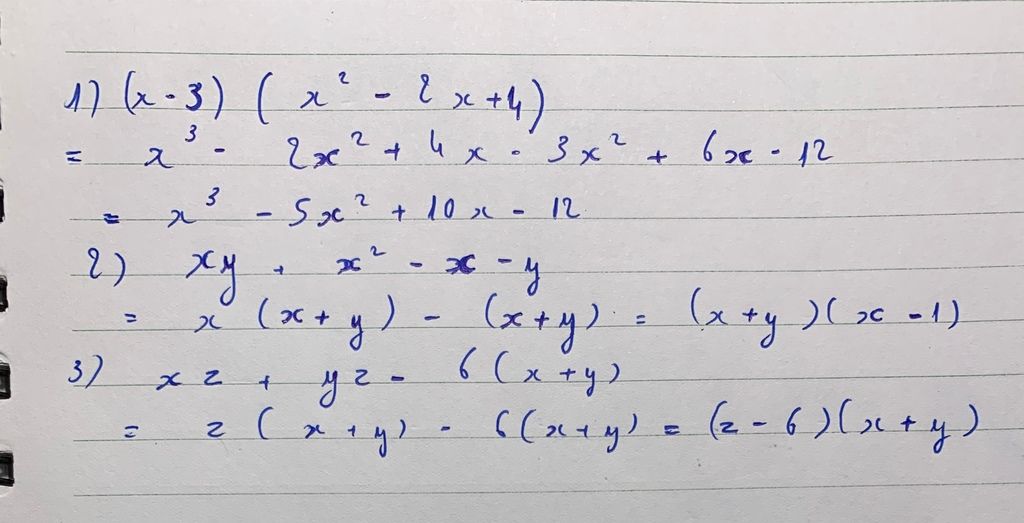 1) (x - 3) ( x² - 2x + 4)
= x³ - 2x² + 4x - 3x² + 6x - 12
= x³ - 5x² + 10x - 12
2) xy + x² - x - y
= x (x + y) - (x + y) = (x + y)(x - 1)
3) xz + yz - 6(x + y)
= z (x + y) - 6(x + y) = (z - 6)(x + y)